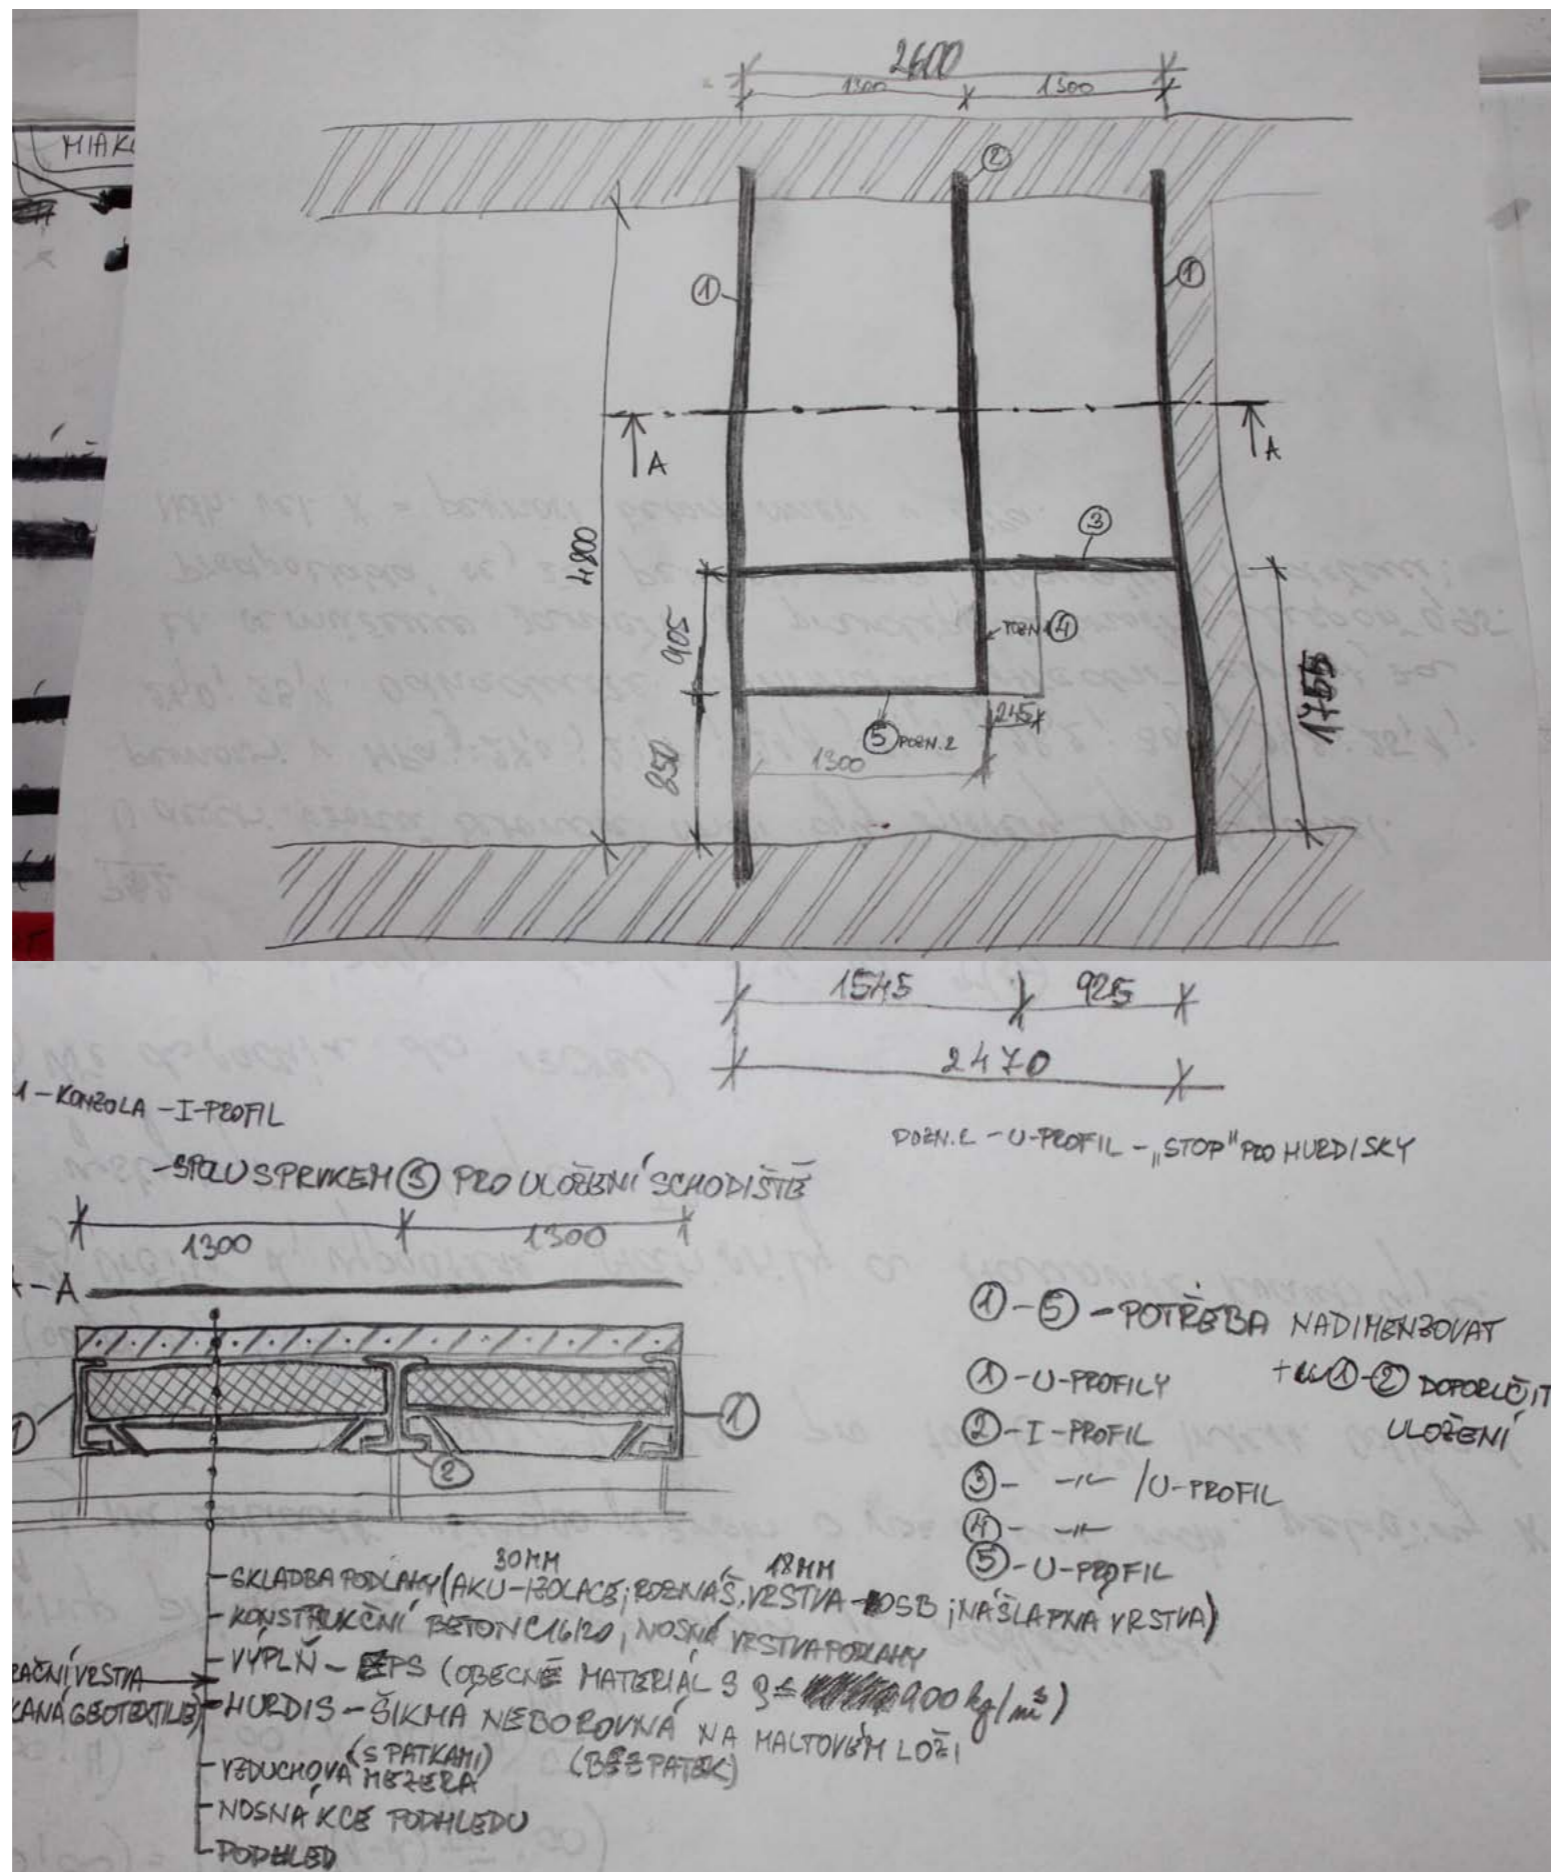 2600
1300
1300
MIAK
②
①
①
A
A
③
4800
905
POZN. ④
1755
245
⑤ POZN. 2
1300
850
1545
925
2470
1 - KONZOLA - I-PROFIL
- SPOLU S PRVKEM ③ PRO ULOŽENÍ SCHODIŠTĚ
POZN. 2 - U-PROFIL - „STOP" PRO HURDISKY
1300
1300
A-A
①
①
②
① - ⑤ - POTŘEBA NADIMENZOVAT
+ ① - ② DOPORUČIT
ULOŽENÍ
① - U-PROFILY
② - I - PROFIL
③ - -||- / U-PROFIL
④ - -||-
⑤ - U-PROFIL
30MM 18MM
- SKLADBA PODLAHY (AKU-IZOLACE; ROZNÁŠ. VRSTVA - OSB; NÁŠLAPNÁ VRSTVA)
- KONSTRUKČNÍ BETON C16/20, NOSNÁ VRSTVA PODLAHY
- VÝPLŇ - EPS (OBECNĚ MATERIÁL S ρ ≤ 900 kg/m³)
RAČNÍ VRSTVA
KANÁ GEOTEXTILIE)
- HURDIS - ŠIKMÁ NEBO ROVNÁ NA MALTOVÉM LOŽI
(S PATKAMI) (BEZ PATEK)
- VZDUCHOVÁ MEZERA
- NOSNÁ KCE PODHLEDU
- PODHLED